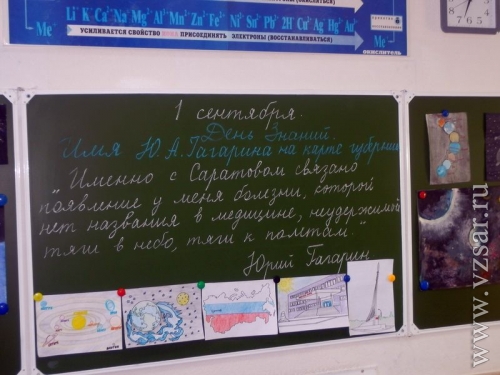 Li K Ca Na Mg Al Mn Zn Fe Ni Sn Pb 2H Cu Ag Hg Au
Me
УСИЛИВАЕТСЯ СВОЙСТВО ИОНА ПРИСОЕДИНЯТЬ ЭЛЕКТРОНЫ (ВОССТАНАВЛИВАТЬСЯ)
Me
окислитель
1 сентября.
День Знаний.
Имя Ю.А.Гагарина на карте губернии
"Именно с Саратовом связано
появление у меня болезни, которой
нет названия в медицине, неудержимой
тяги в небо, тяги к полетам."
Юрий Гагарин
www.vzsar.ru